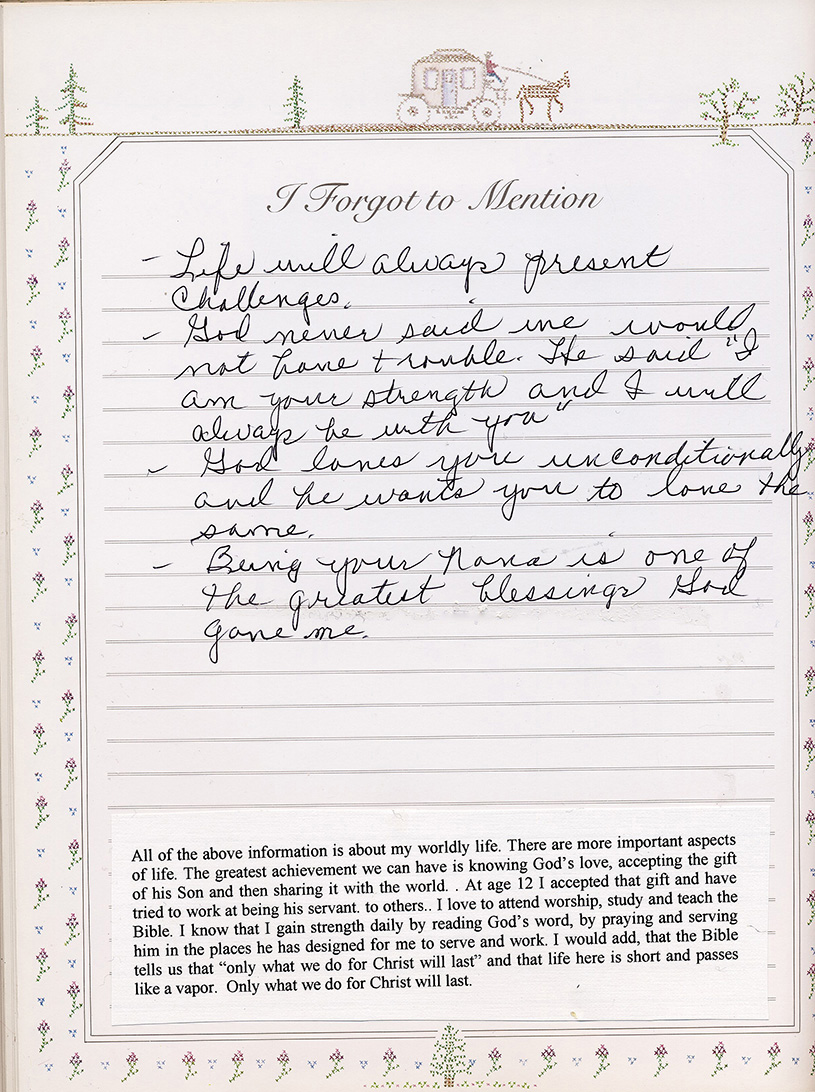 I Forgot to Mention
- Life will always present
Challenges.
- God never said we would
not have trouble. He said "I
am your strength and I will
always be with you"
- God loves you unconditionally
and he wants you to love the
same.
- Being your Nana is one of
the greatest blessings God
gave me.
All of the above information is about my worldly life. There are more important aspects
of life. The greatest achievement we can have is knowing God's love, accepting the gift
of his Son and then sharing it with the world. . At age 12 I accepted that gift and have
tried to work at being his servant. to others.. I love to attend worship, study and teach the
Bible. I know that I gain strength daily by reading God's word, by praying and serving
him in the places he has designed for me to serve and work. I would add, that the Bible
tells us that "only what we do for Christ will last" and that life here is short and passes
like a vapor. Only what we do for Christ will last.